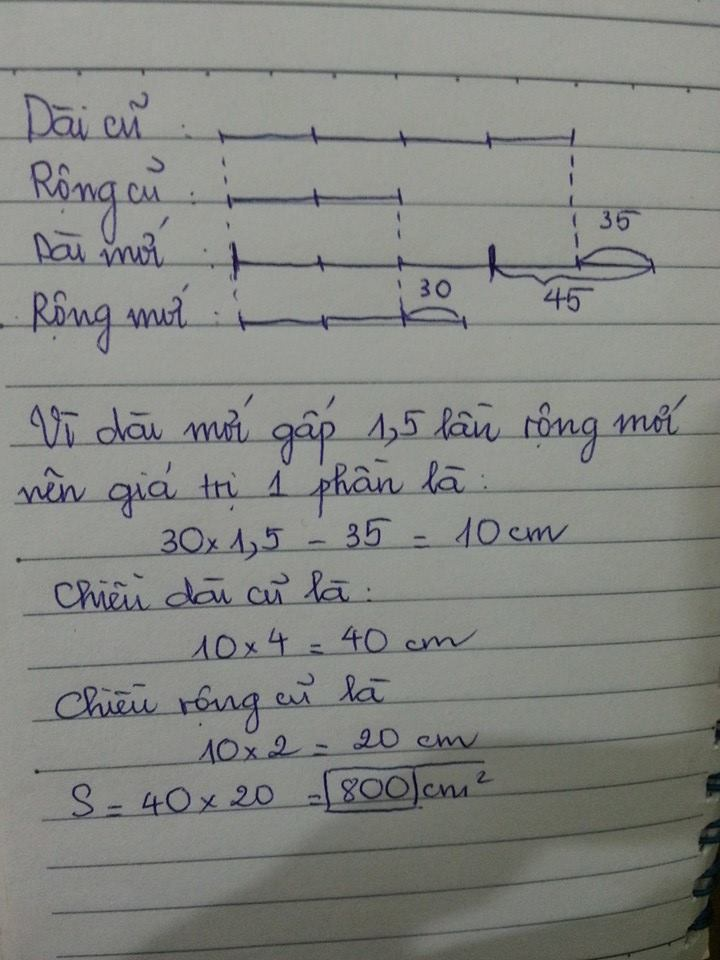 Dài cũ :
Rộng cũ :
35
Dài mới :
30
45
Rộng mới :
Vì dài mới gấp 1,5 lần rộng mới
nên giá trị 1 phần là :
30 x 1,5 - 35 = 10 cm
Chiều dài cũ là :
10 x 4 = 40 cm
Chiều rộng cũ là
10 x 2 = 20 cm
S = 40 x 20 = 800 cm²